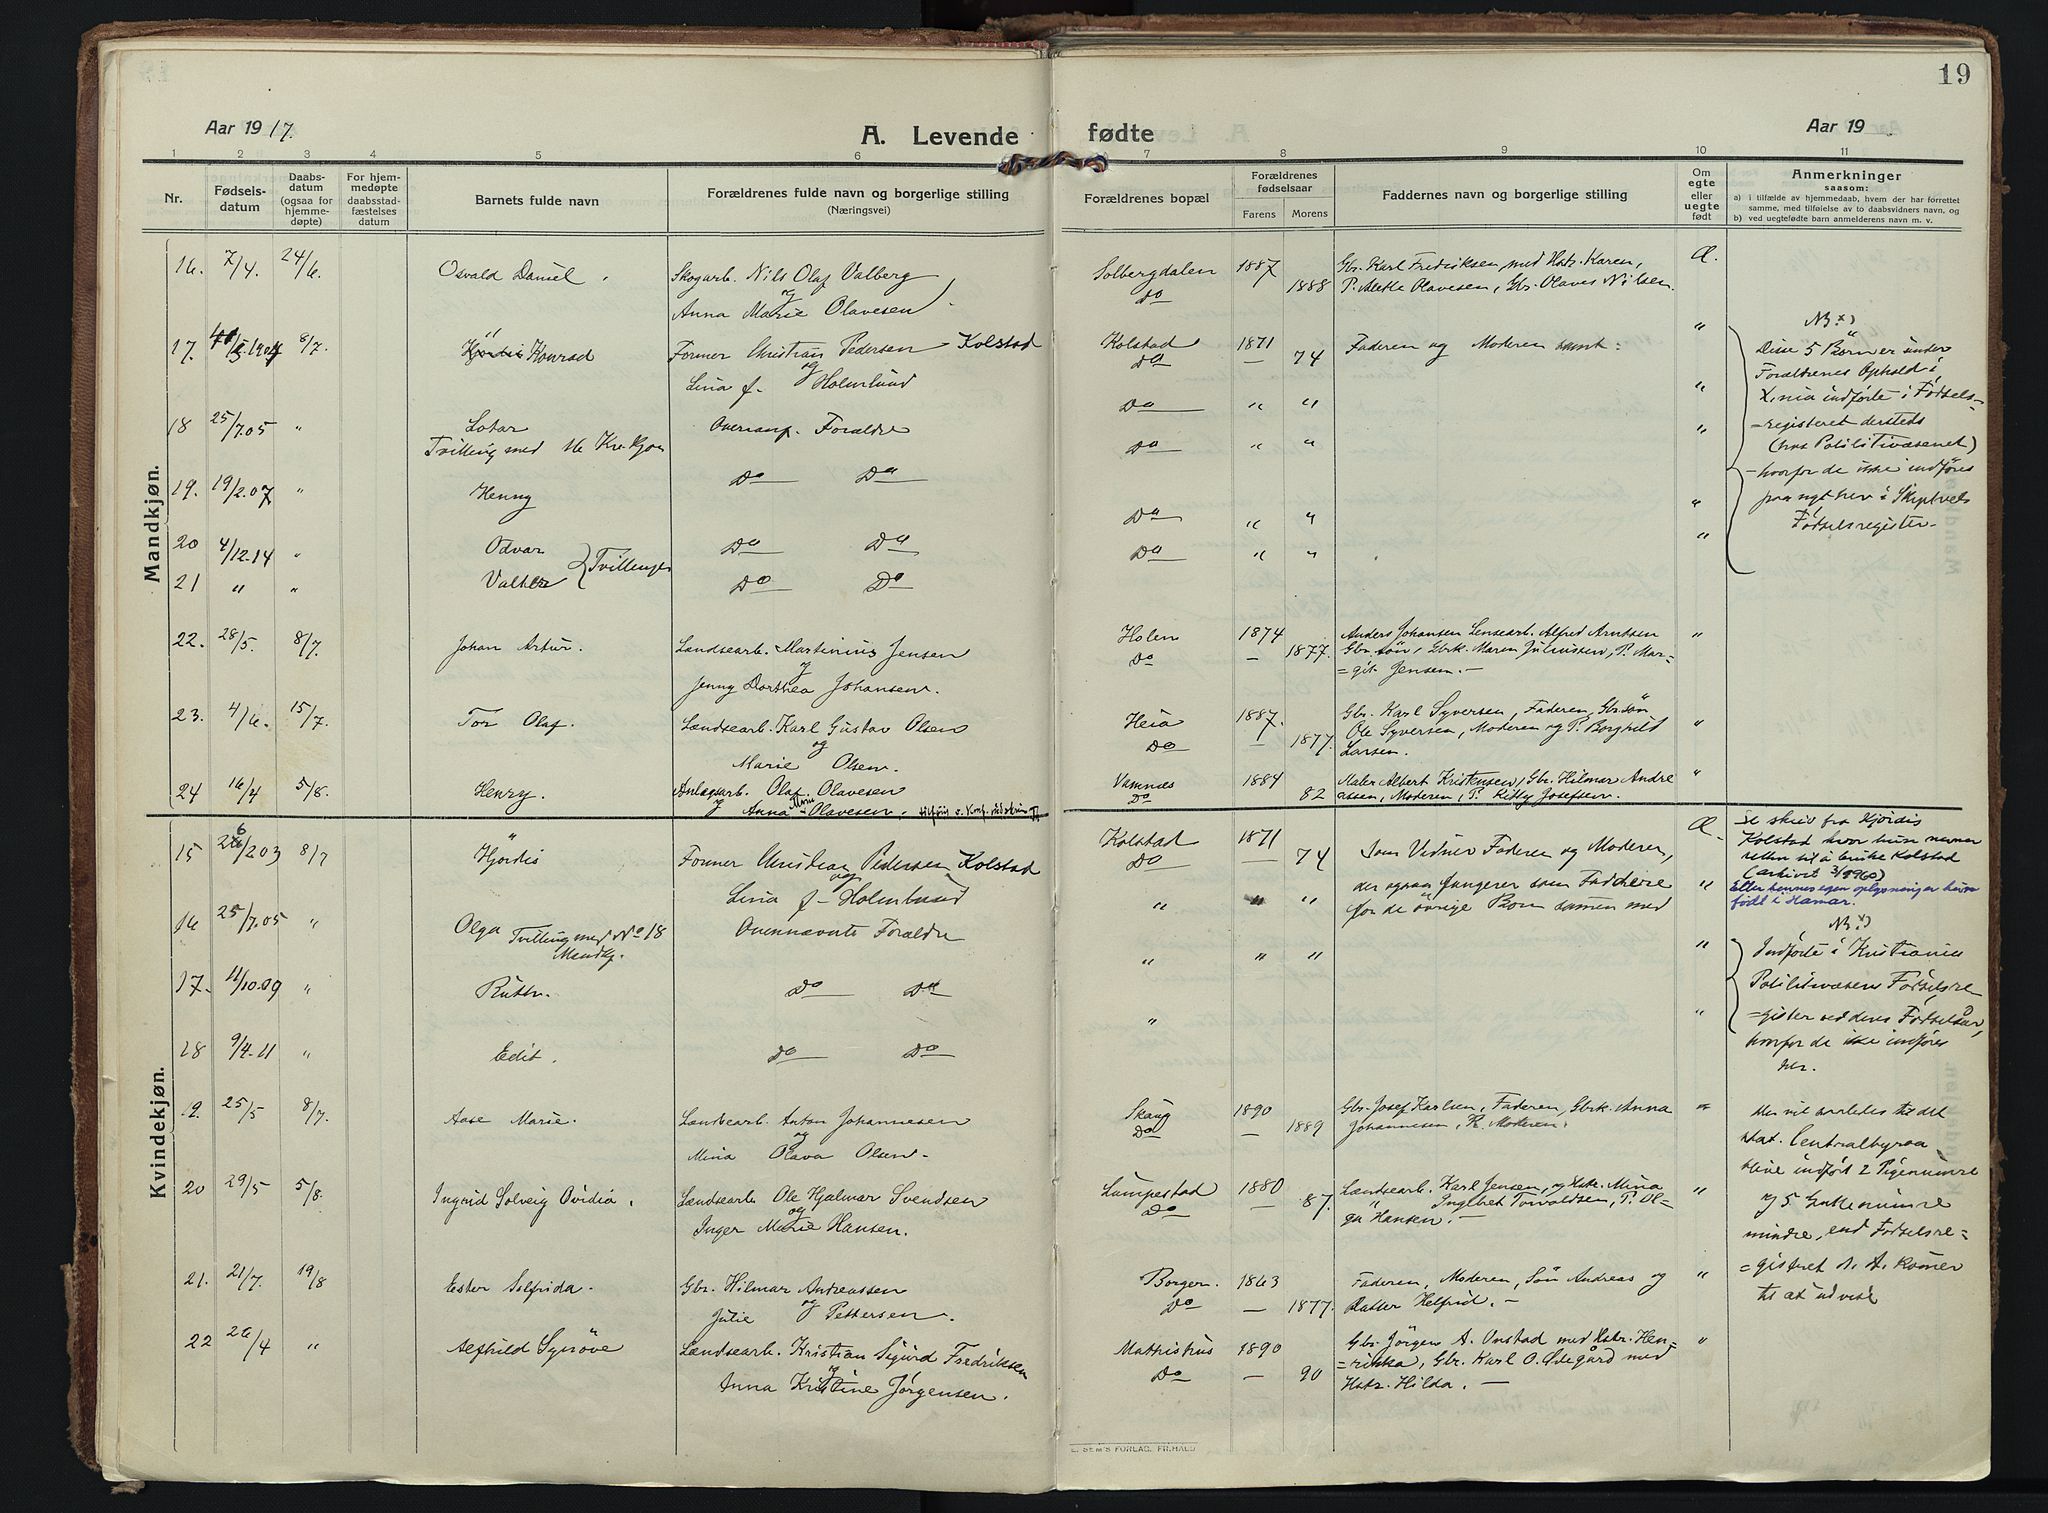 19
Aar 1917.
A. Levende fødte
Aar 19
1 2 3 4 5 6 7 8 9 10 11
Nr.
Fødsels-
datum
Daabs-
datum
(ogsaa for
hjemme-
døpte)
For hjem-
medøpte
daabsstad-
fæstelses
datum
Barnets fulde navn
Forældrenes fulde navn og borgerlige stilling
(Næringsvei)
Forældrenes bopæl
Forældrenes
fødselsaar
Farens Morens
Faddernes navn og borgerlige stilling
Om
egte
eller
uegte
født
Anmerkninger
saasom:
a) i tilfælde av hjemmedaab, hvem der har forrettet
samme, med tilføielse av to daabsvidners navn, og
b) ved uegtefødte barn anmelderens navn m. v.
Mandkjøn.
16. 7/4. 24/6. Osvald Daniel. Skogarb. Nils Olaf Valberg Solbergdalen 1887 Gbr. Karl Fredriksen, med Hstr. Karen, Æ.
og Do 1888 P. Alette Olavesen, Gbr. Olaves Nilsen.
Anna Marie Olavesen.
17. 8/7. Hjördis Konrad Former Christian Pedersen Kolstad Kolstad 1871 Faderen og Moderen samt: "
og Do — 74
Lina f. Holmlund
18 25/7.05 " Lotar Ovennf. Forældre Do " " "
Tvilling med
19. 19/2.07 " Henny Do Do Do " " "
20 4/12.14 " Odvar Do Do Do " " "
Tvillinger
21 " " Valter Do Do Do " " "
NB x)
Disse 5 Børn er under
Forældrenes Ophold i
X.nia indførte i Fødsels-
=registeret dersteds
(hos Politivæsenet)
hvorfor de ikke indføres
paa nyt her i Skiptvets
Fødselsregister.
22. 28/5. 8/7. Johan Artur. Lændsearb. Martinius Jensen Holen 1874 Anders Johansen Lensearb. Alfred Arntsen "
og Do — 1877. Gbr. søn, Gbrk. Maren Julnissen, P. Mar-
Jenny Dorthea Johansen. =git Jensen. —
23. 4/6. 15/7. Tor Olaf. Lændsearb. Karl Gustav Olsen Heia 1887. Gbr. Karl Syversen, Faderen, Gbr.søn "
og Do — 1877. Ole Syversen, Moderen og P. Borghild
Marie Olsen. Larsen.
24 16/4 5/8. Henry. Anlægsarb. Olaf Olavesen Vamnæs 1884 Maler Albert Kristensen, Gbr. Hilmar Andre "
og Anna Marie Olavesen. Do 82 assen, Moderen, P. Kitty Josefsen.
Kvindekjøn.
15 8/7 Hjördis Former Christian Pedersen Kolstad Kolstad 1871 Som Vidner Faderen og Moderen, Æ.
og Do — 74 der ogsaa fungerer som Faddere
Lina f. Holmlund for de övrige Born samen med
Se skriv fra Hjördis
Kolstad hvor hun nevner
retten til å bruke Kolstad
(arkivet 3/1960)
Etter hennes egen oplysning er hun
født i Hamar.
16 25/7.05 " Olga Tvilling med No 18 Ovennævnte Forældre " " " "
Mandkj.
17. 11/10.09 " Ruth. Do Do " " " "
18 9/4.11 " Edit. Do Do " "
NB x)
Indførte i Kristiania
Politivæsen Fødselsre
=gister ved deres Fødselsår,
hvorfor de ikke indføres
her.
19. 25/5 8/7. Aase Marie. Lændsearb. Anton Johannesen Skaug 1890 Gbr. Josef Karlsen, Faderen, Gbrk. Anna "
og Do — 1889 Johannesen, P. Moderen.
Mina Olava Olsen.
20 29/5 5/8. Ingrid Solveig Ovidia. Lændsearb Ole Hjalmar Svendsen Lumpestad 1880 Lændsearb. Karl Jensen, og Hstr. Mina "
og Do 87. Ingebret Torvaldsen, P. Ol-
Inger Marie Hansen. ga Hansen. —
21. 21/7. 19/8 Ester Silfrida. Gbr. Hilmar Andreassen Borger. 1863 Faderen, Moderen, Søn Andreas og "
Julie og Pettersen. Do — 1877. Datter Helfrid. —
22 26/4 " Alfhild Synöve Lændsearb. Kristian Sigurd Fredriksen 1890 Gbr. Jörgen A. Onstad med Hstr. Hen- "
og Do — 90 =rikka, Gbr. Karl O. Ødegård med
Anna Kristine Jørgensen. Hstr. Hilda. —
Der vil saaledes til det
stat. Centralbyraa
blive indført 2 Pigenumre
og 5 Guttenumre
mindre, end Fødselsre=
=gisteret d. A. kommer
til at udvise
E. SEM'S FORLAG, FR.HALD